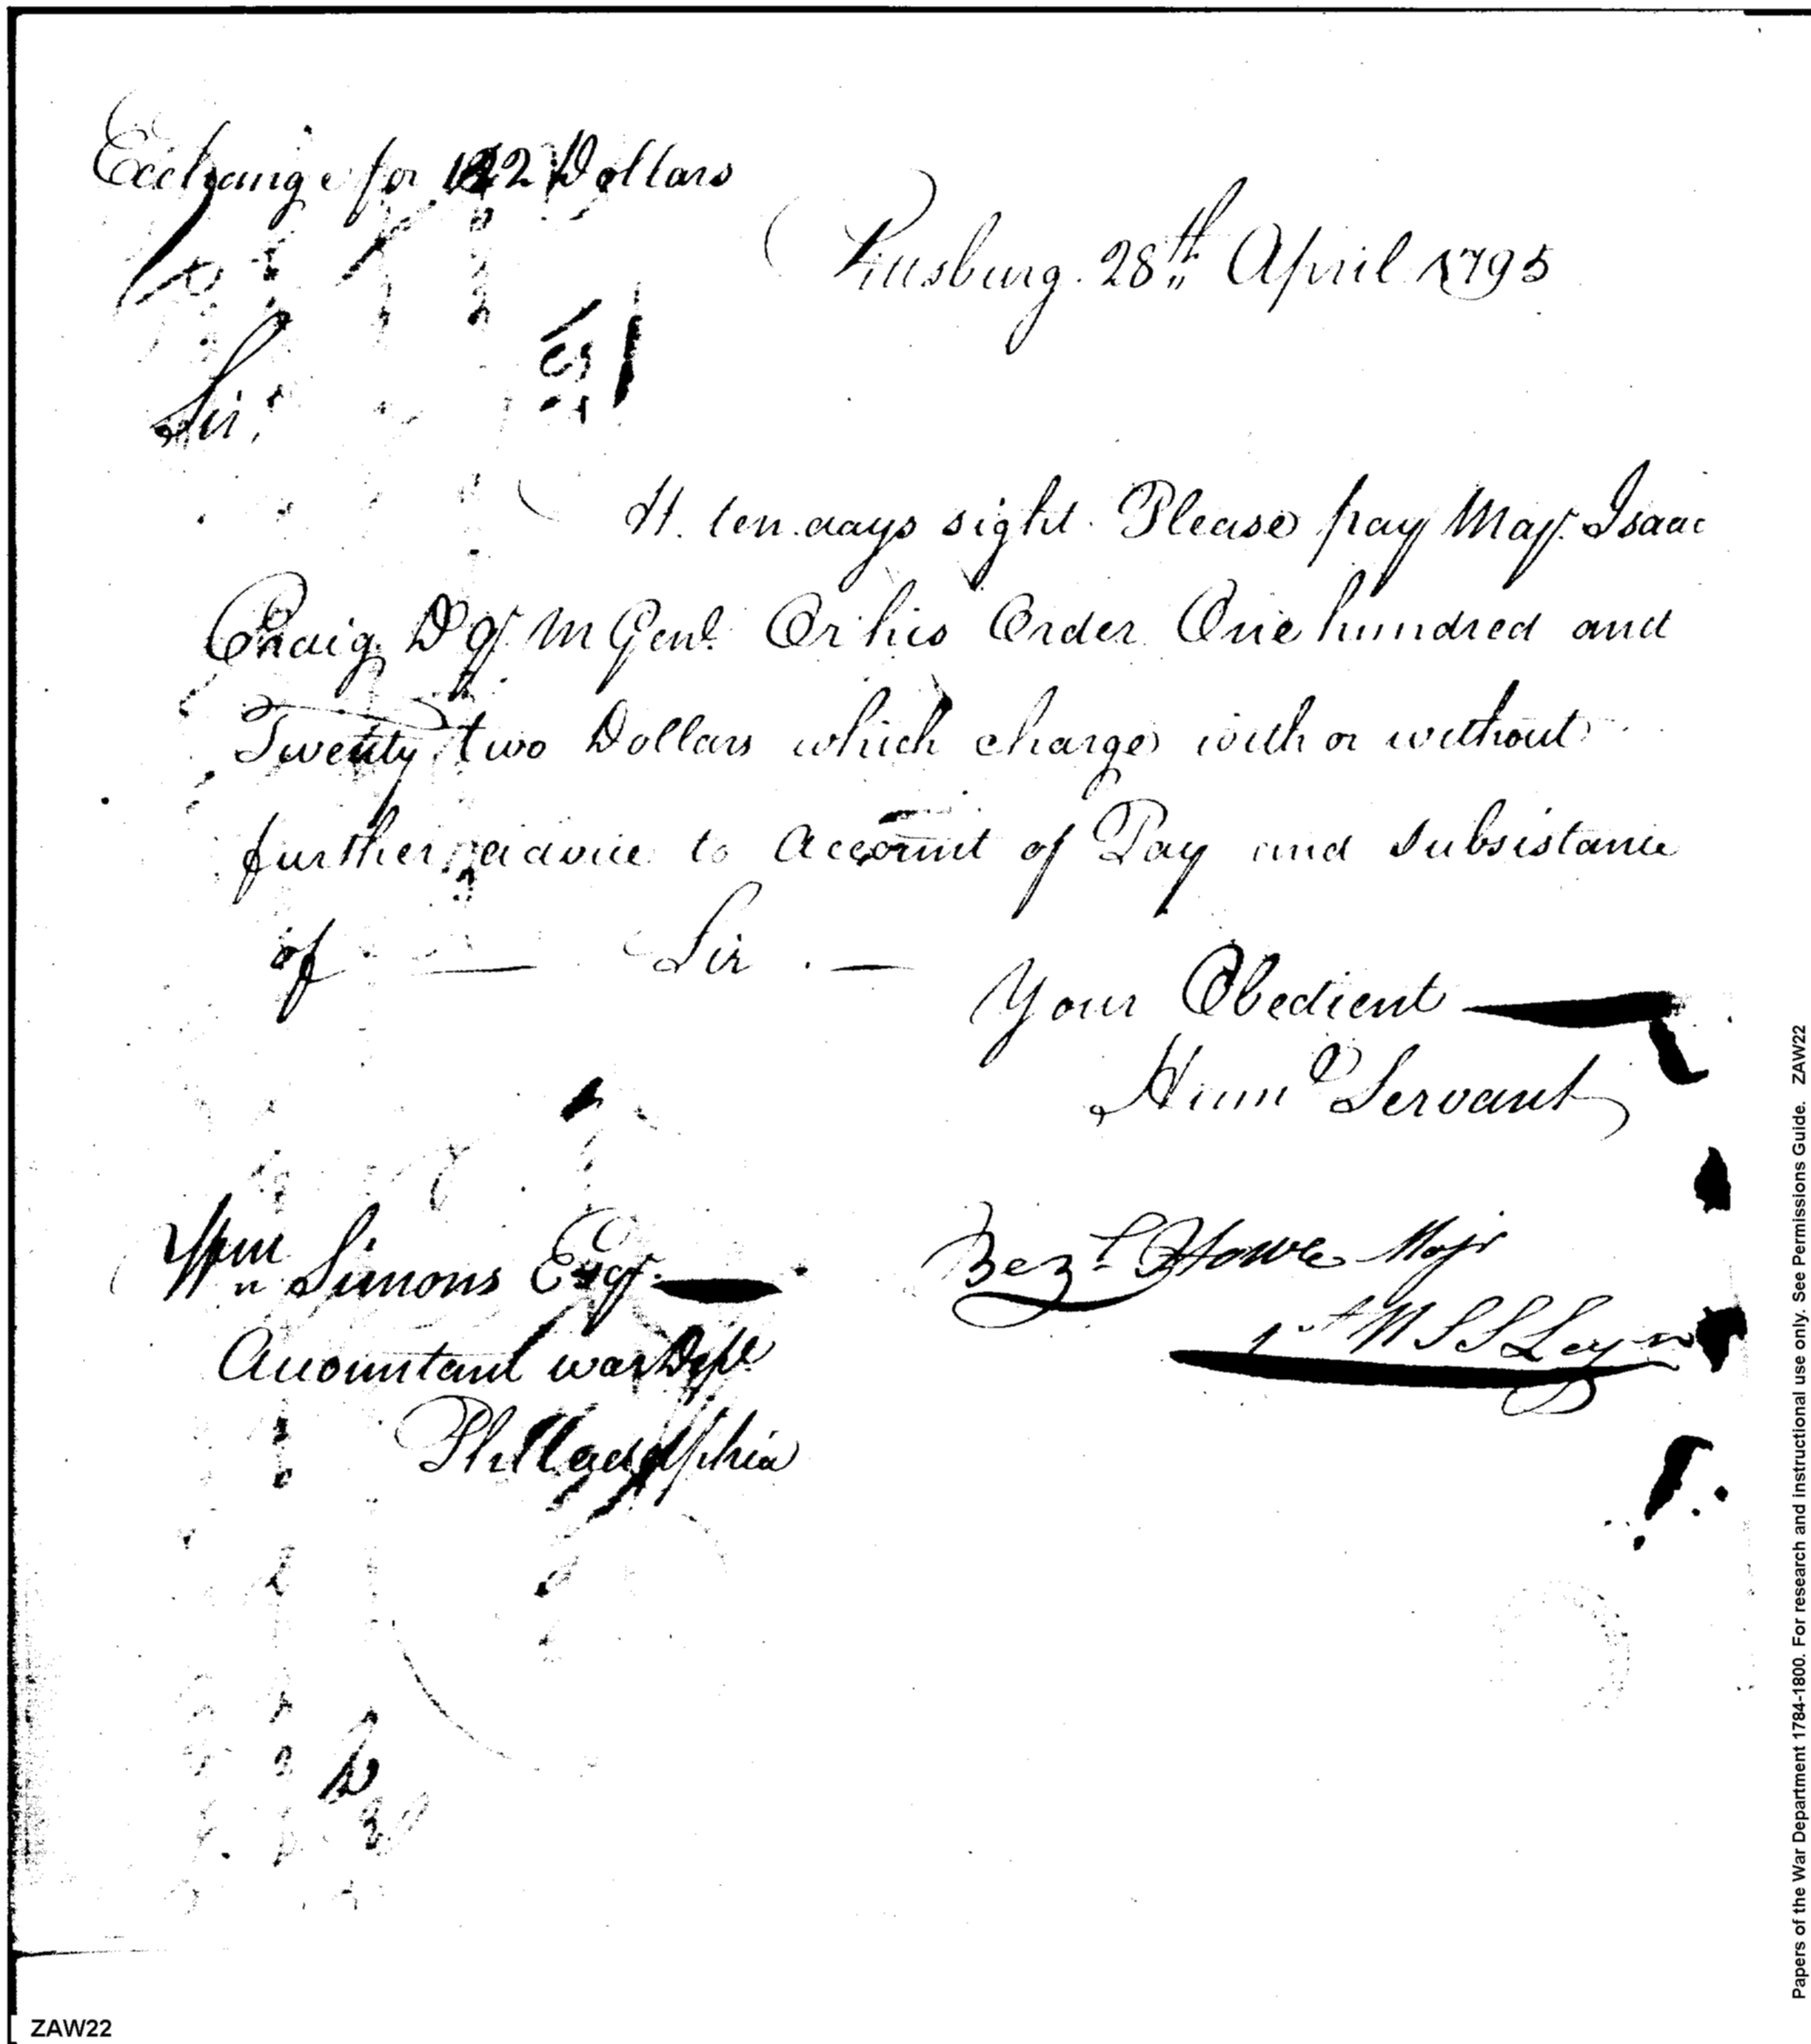 Exchange for 122 Dollars
Pittsburg. 28th April 1795
Sir,
At ten days sight Please pay Majr. Isaac
Craig D Q M Genl. Or his Order One hundred and
Twenty two Dollars which charge with or without
further advice to Account of Pay and Subsistance
of — Sir —
Your Obedient
Humb Servant
Wm Simons Esqr.
Bezl Howe Majr
1st U S S Legn
Accountant war Dept
Philladelphia
Papers of the War Department 1784-1800. For research and instructional use only. See Permissions Guide. ZAW22
ZAW22